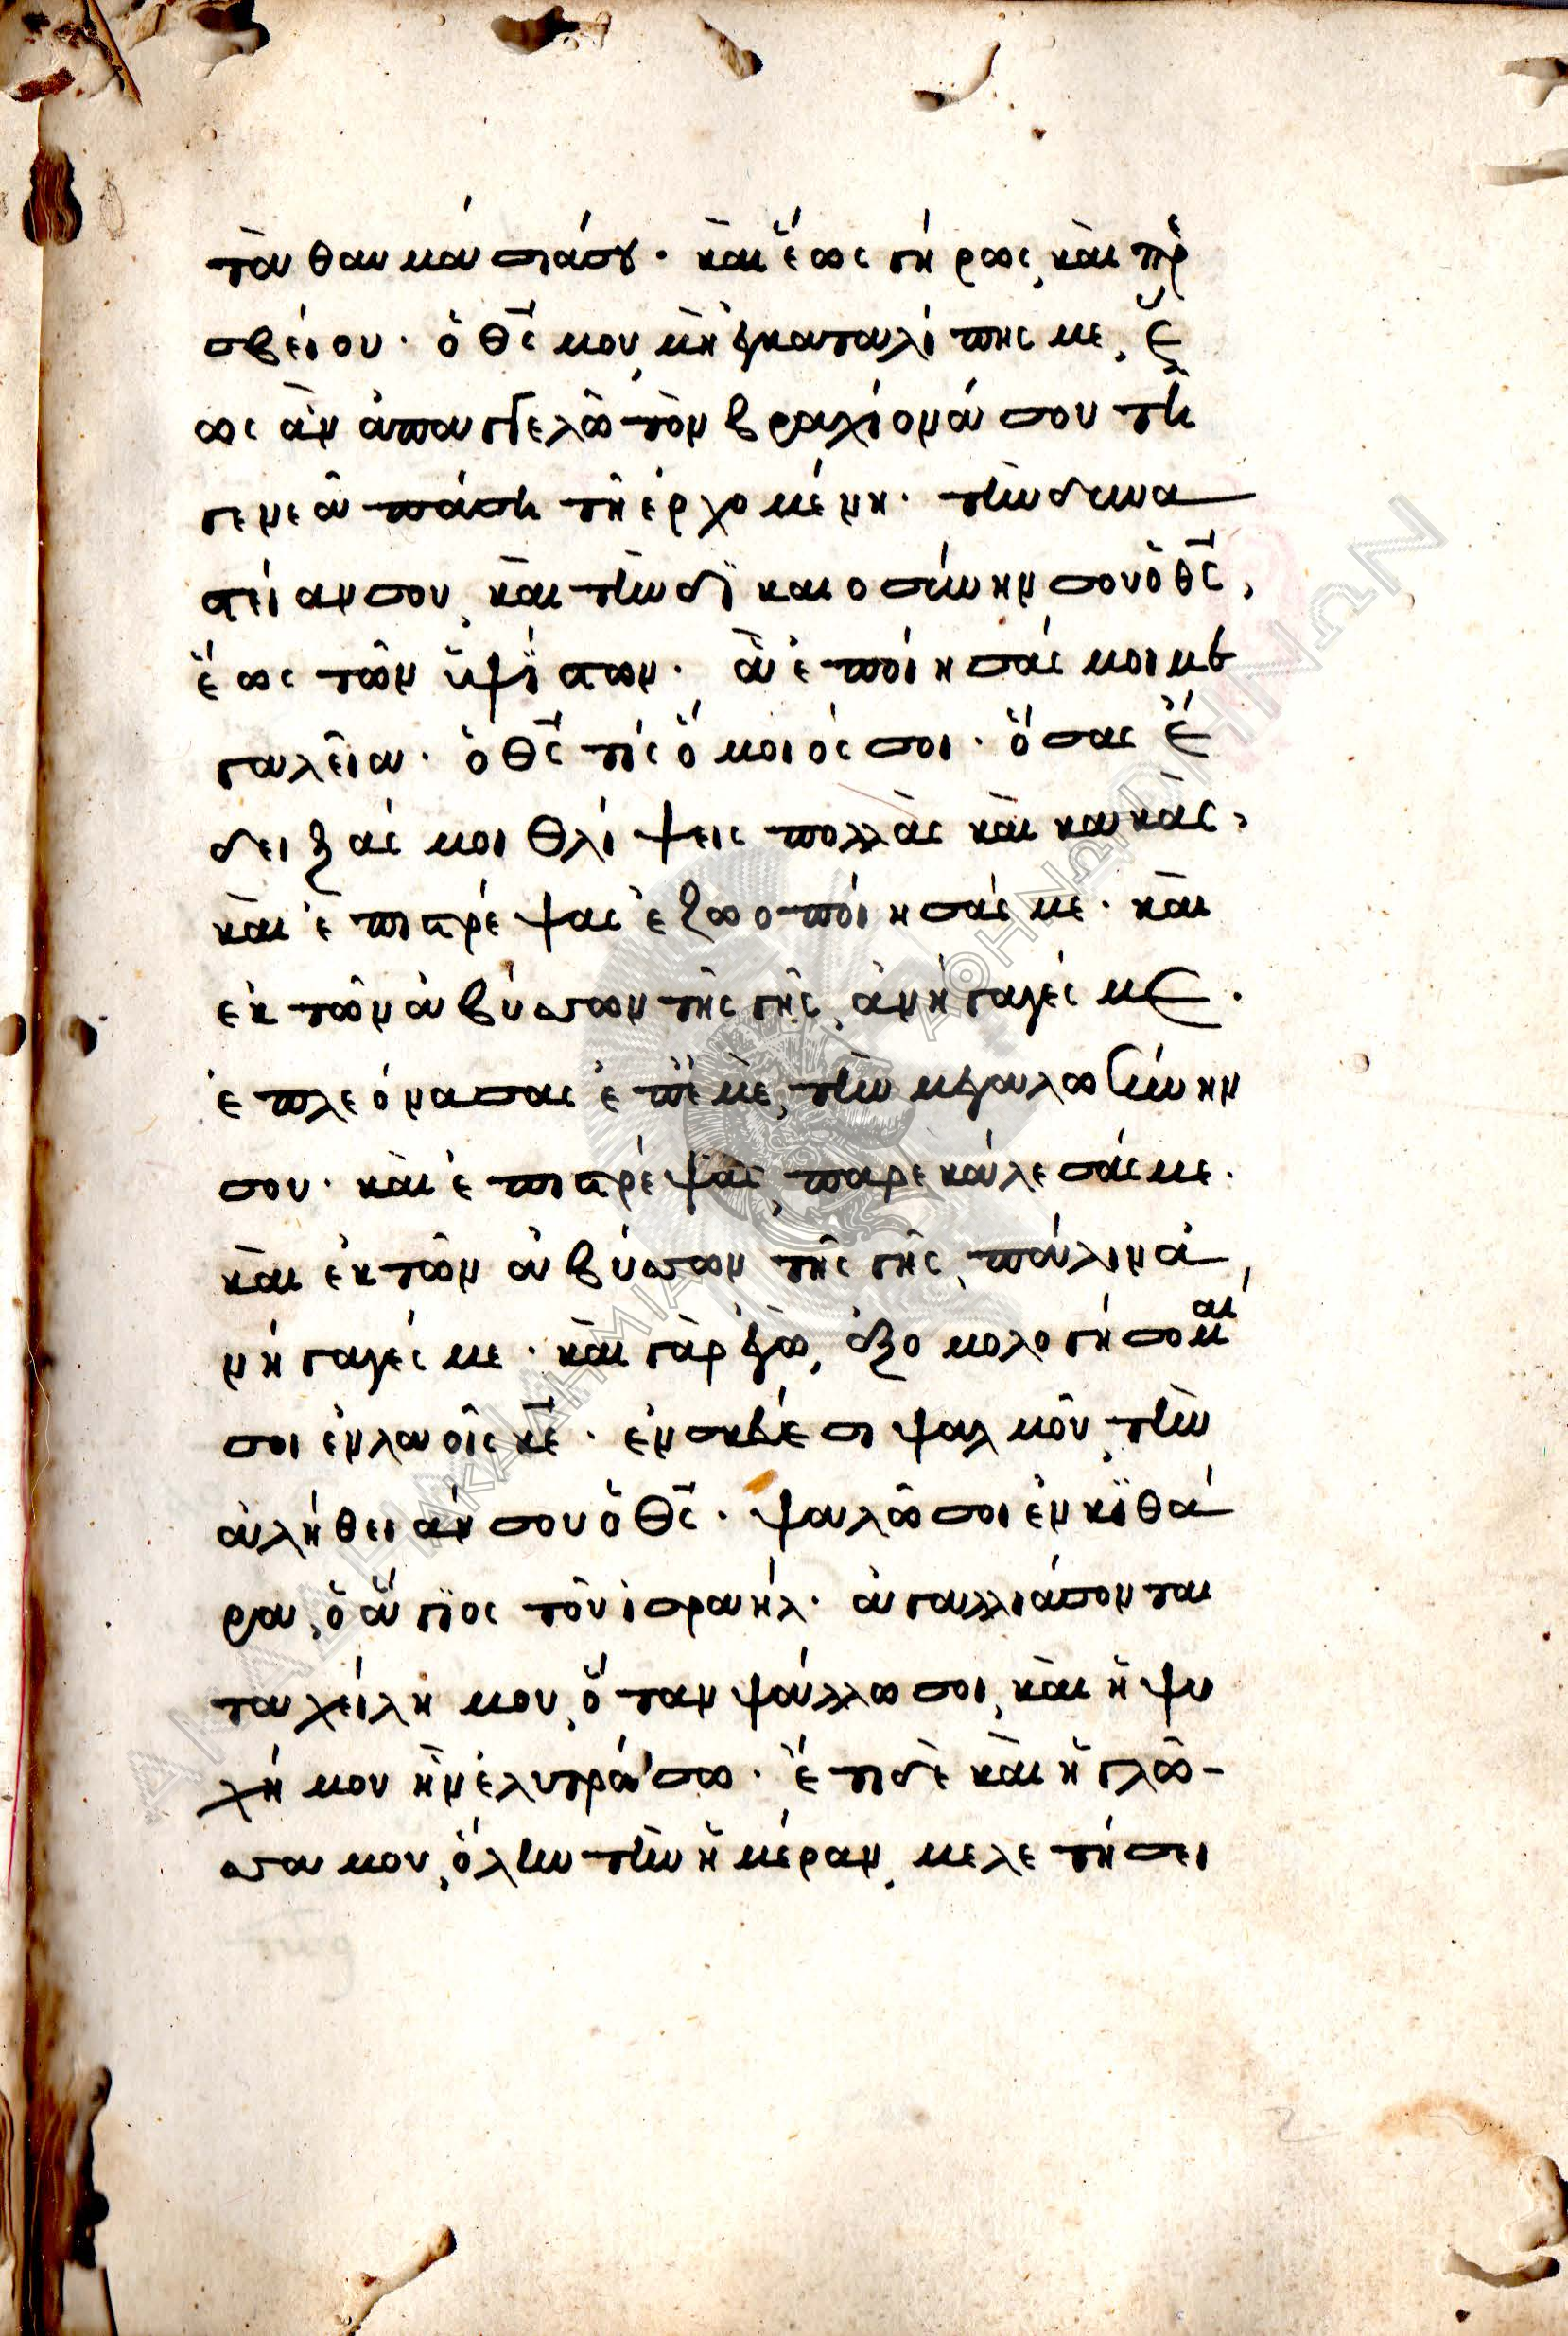 τὰ θαυμάσιά σου. καὶ ἕως γήρως, καὶ πρε
σβείου. ὁ θς μου, μὴ ἐγκαταλίπης με, ἕ
ως ἂν ἀπαγγελῶ τὸν βραχίονά σου τῆ
γενεᾶ πάση τῆ ἐρχομένη. τὴν δυνα
στείαν σου, καὶ τὴν δϊκαιοσύνην σου ὁ θς,
ἕως τῶν ὑψίστων. ἃ ἐποίησάς μοι με
γαλεῖα. ὁ θς τίς ὅμοιός σοι. ὅσας ἔ
δειξάς μοι θλίψεις πολλὰς καὶ κακὰς,
καὶ ἐπιστρέψας ἐζωοποίησάς με. καὶ
ἐκ τῶν ἀβύσσων τῆς γῆς, ἀνήγαγές με.
ἐπλεόνασας ἐπ' ἐμὲ, τὴν μεγαλωσύνην
σου. καὶ ἐπιστρέψας, παρεκάλεσάς με.
καὶ ἐκ τῶν ἀβύσσων τῆς γῆς, πάλιν ἀ
νήγαγές με. καὶ γὰρ ἐγὼ, ἐξομολογήσομαί
σοι ἐν λαοῖς κε. ἐν σκεύεσι ψαλμοῦ, τὴν
ἀλήθειάν σου ὁ θς. ψαλῶ σοι ἐν κϊθά
ρα, ὁ ἅγϊος τοῦ ἰσραήλ. ἀγαλλιάσονται
τὰ χείλη μου, ὅταν ψάλλω σοι, καὶ ἡ ψυ
χή μου ἣν ἐλυτρώσω. ἔτι δὲ καὶ ἡ γλῶσ-
σα μου, ὅλην τὴν ἡμέραν, μελετήσει